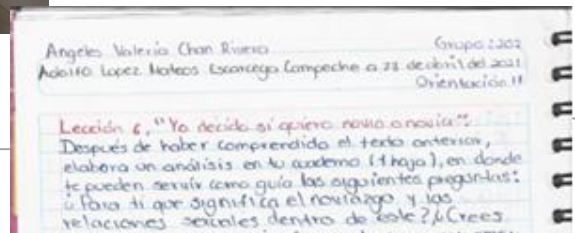 Angeles Valeria Chan Rivero Grupo: 202
Adolfo Lopez Mateos Escarcega Campeche a 23 de abril del 2021
Orientación II
Lección 6, "Yo decido si quiero novio o novia".
Después de haber comprendido el texto anterior,
elabora un análisis en tu cuaderno (1 hoja), en donde
te pueden servir como guía las siguientes preguntas:
¿Para ti que significa el noviazgo y las
relaciones sexuales dentro de este? ¿Crees